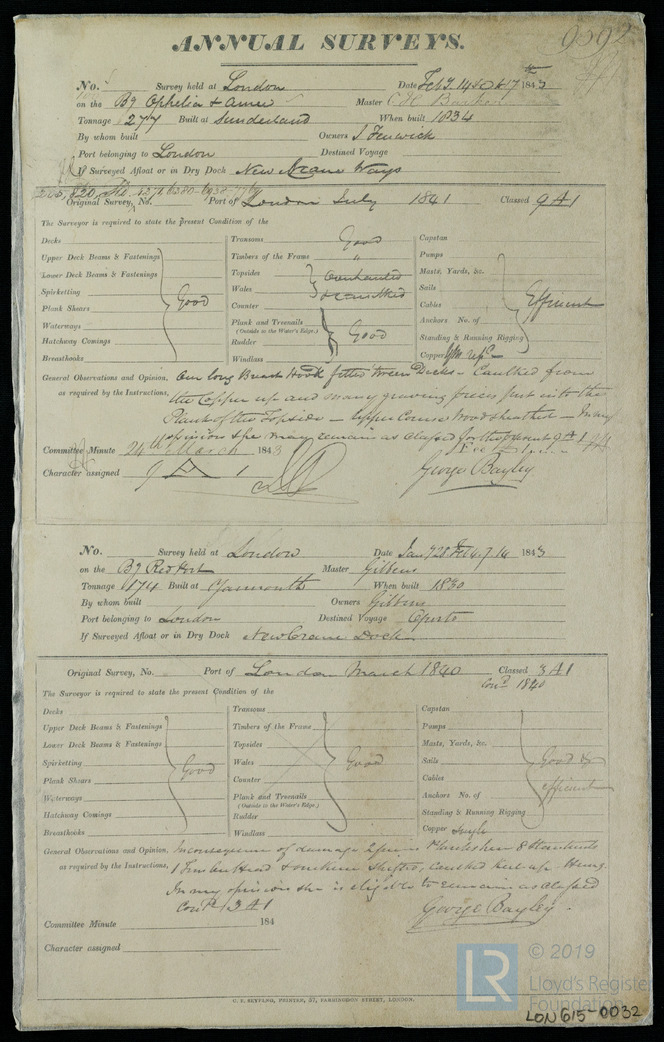 9592
ANNUAL SURVEYS.
No. Survey held at London Date Feb 7. 14 1843
on the Bg Ophelia & Annie Master
Tonnage 277 Built at Sunderland When built 1834
By whom built Owners J. Fenwick
Port belonging to London Destined Voyage
If Surveyed Afloat or in Dry Dock New Crane Ways
Original Survey, No. Port of London July 1841 Classed 9 A 1
The Surveyor is required to state the present Condition of the
Decks
Upper Deck Beams & Fastenings
Lower Deck Beams & Fastenings
Spirketting
Plank Shears
Waterways
Hatchway Comings
Breasthooks
Good
Transoms Good
Timbers of the Frame "
Topsides
Wales
Counter
Overhauled
recaulked
Plank and Treenails
(Outside to the Water's Edge.)
Rudder
Windlass
Good
Capstan
Pumps
Masts, Yards, &c.
Sails
Cables
Anchors No. of
Standing & Running Rigging
Efficient
Copper
General Observations and Opinion, One long Breast Hook fitted tween Decks – Caulked from
as required by the Instructions, the Copper up and many graving pieces put into the
Plank of the Topside – Upper Course Wood sheather – In my
opinion she may remain as classed for the present 9 A 1
Committee Minute 24th March 1843
Character assigned 9 A 1
George Bayley
No. Survey held at London Date Jany 28 Feb 4. 7. 14 1843
on the Bg Red Port Master Gibbens
Tonnage 174 Built at Yarmouth When built 1830
By whom built Owners Gibbens
Port belonging to London Destined Voyage Oporto
If Surveyed Afloat or in Dry Dock New Crane Dock
Original Survey, No. Port of London March 1840 Classed 3 A 1
Cond. 1840
The Surveyor is required to state the present Condition of the
Decks
Upper Deck Beams & Fastenings
Lower Deck Beams & Fastenings
Spirketting
Plank Shears
Waterways
Hatchway Comings
Breasthooks
Good
Transoms
Timbers of the Frame
Topsides
Wales
Counter
Plank and Treenails
(Outside to the Water's Edge.)
Rudder
Windlass
Good
Capstan
Pumps
Masts, Yards, &c.
Sails
Cables
Anchors No. of
Standing & Running Rigging
Good & efficient
Copper single
General Observations and Opinion, In consequence of damage 8 Stanchions
as required by the Instructions, 1 Timber Head shifted, Caulked keel up
In my opinion she is eligible to remain as classed
Cond. 3 A 1
George Bayley.
Committee Minute 184
Character assigned
C. E. SEYFANG, PRINTER, 57, FARRINGDON STREET, LONDON.
LR
© 2019
Lloyd's Register
Foundation
LON615-0032